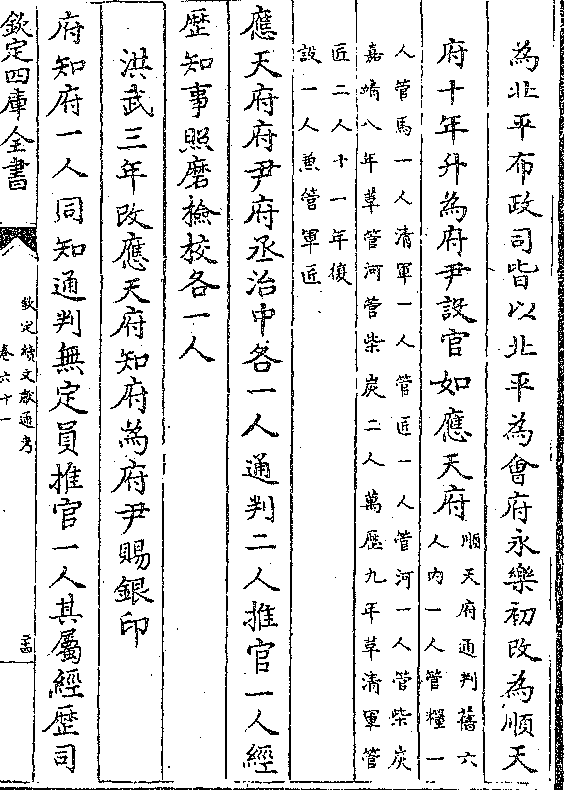 為北平布政司皆以北平為會府永樂初改為順天
府十年升為府尹設官如應天府
順天府通判舊六
人内一人管糧一
人管馬一人清軍一人管匠一人管河一人管柴炭
嘉靖八年革管河管柴炭二人萬歴九年革清軍管
匠二人十一年復
設一人兼管軍匠
應天府府尹府丞治中各一人通判二人推官一人經
歴知事照磨檢校各一人
洪武三年改應天府知府為府尹賜銀印
府知府一人同知通判無定員推官一人其屬經歴司
欽定四庫全書
欽定續文獻通考
卷六十一